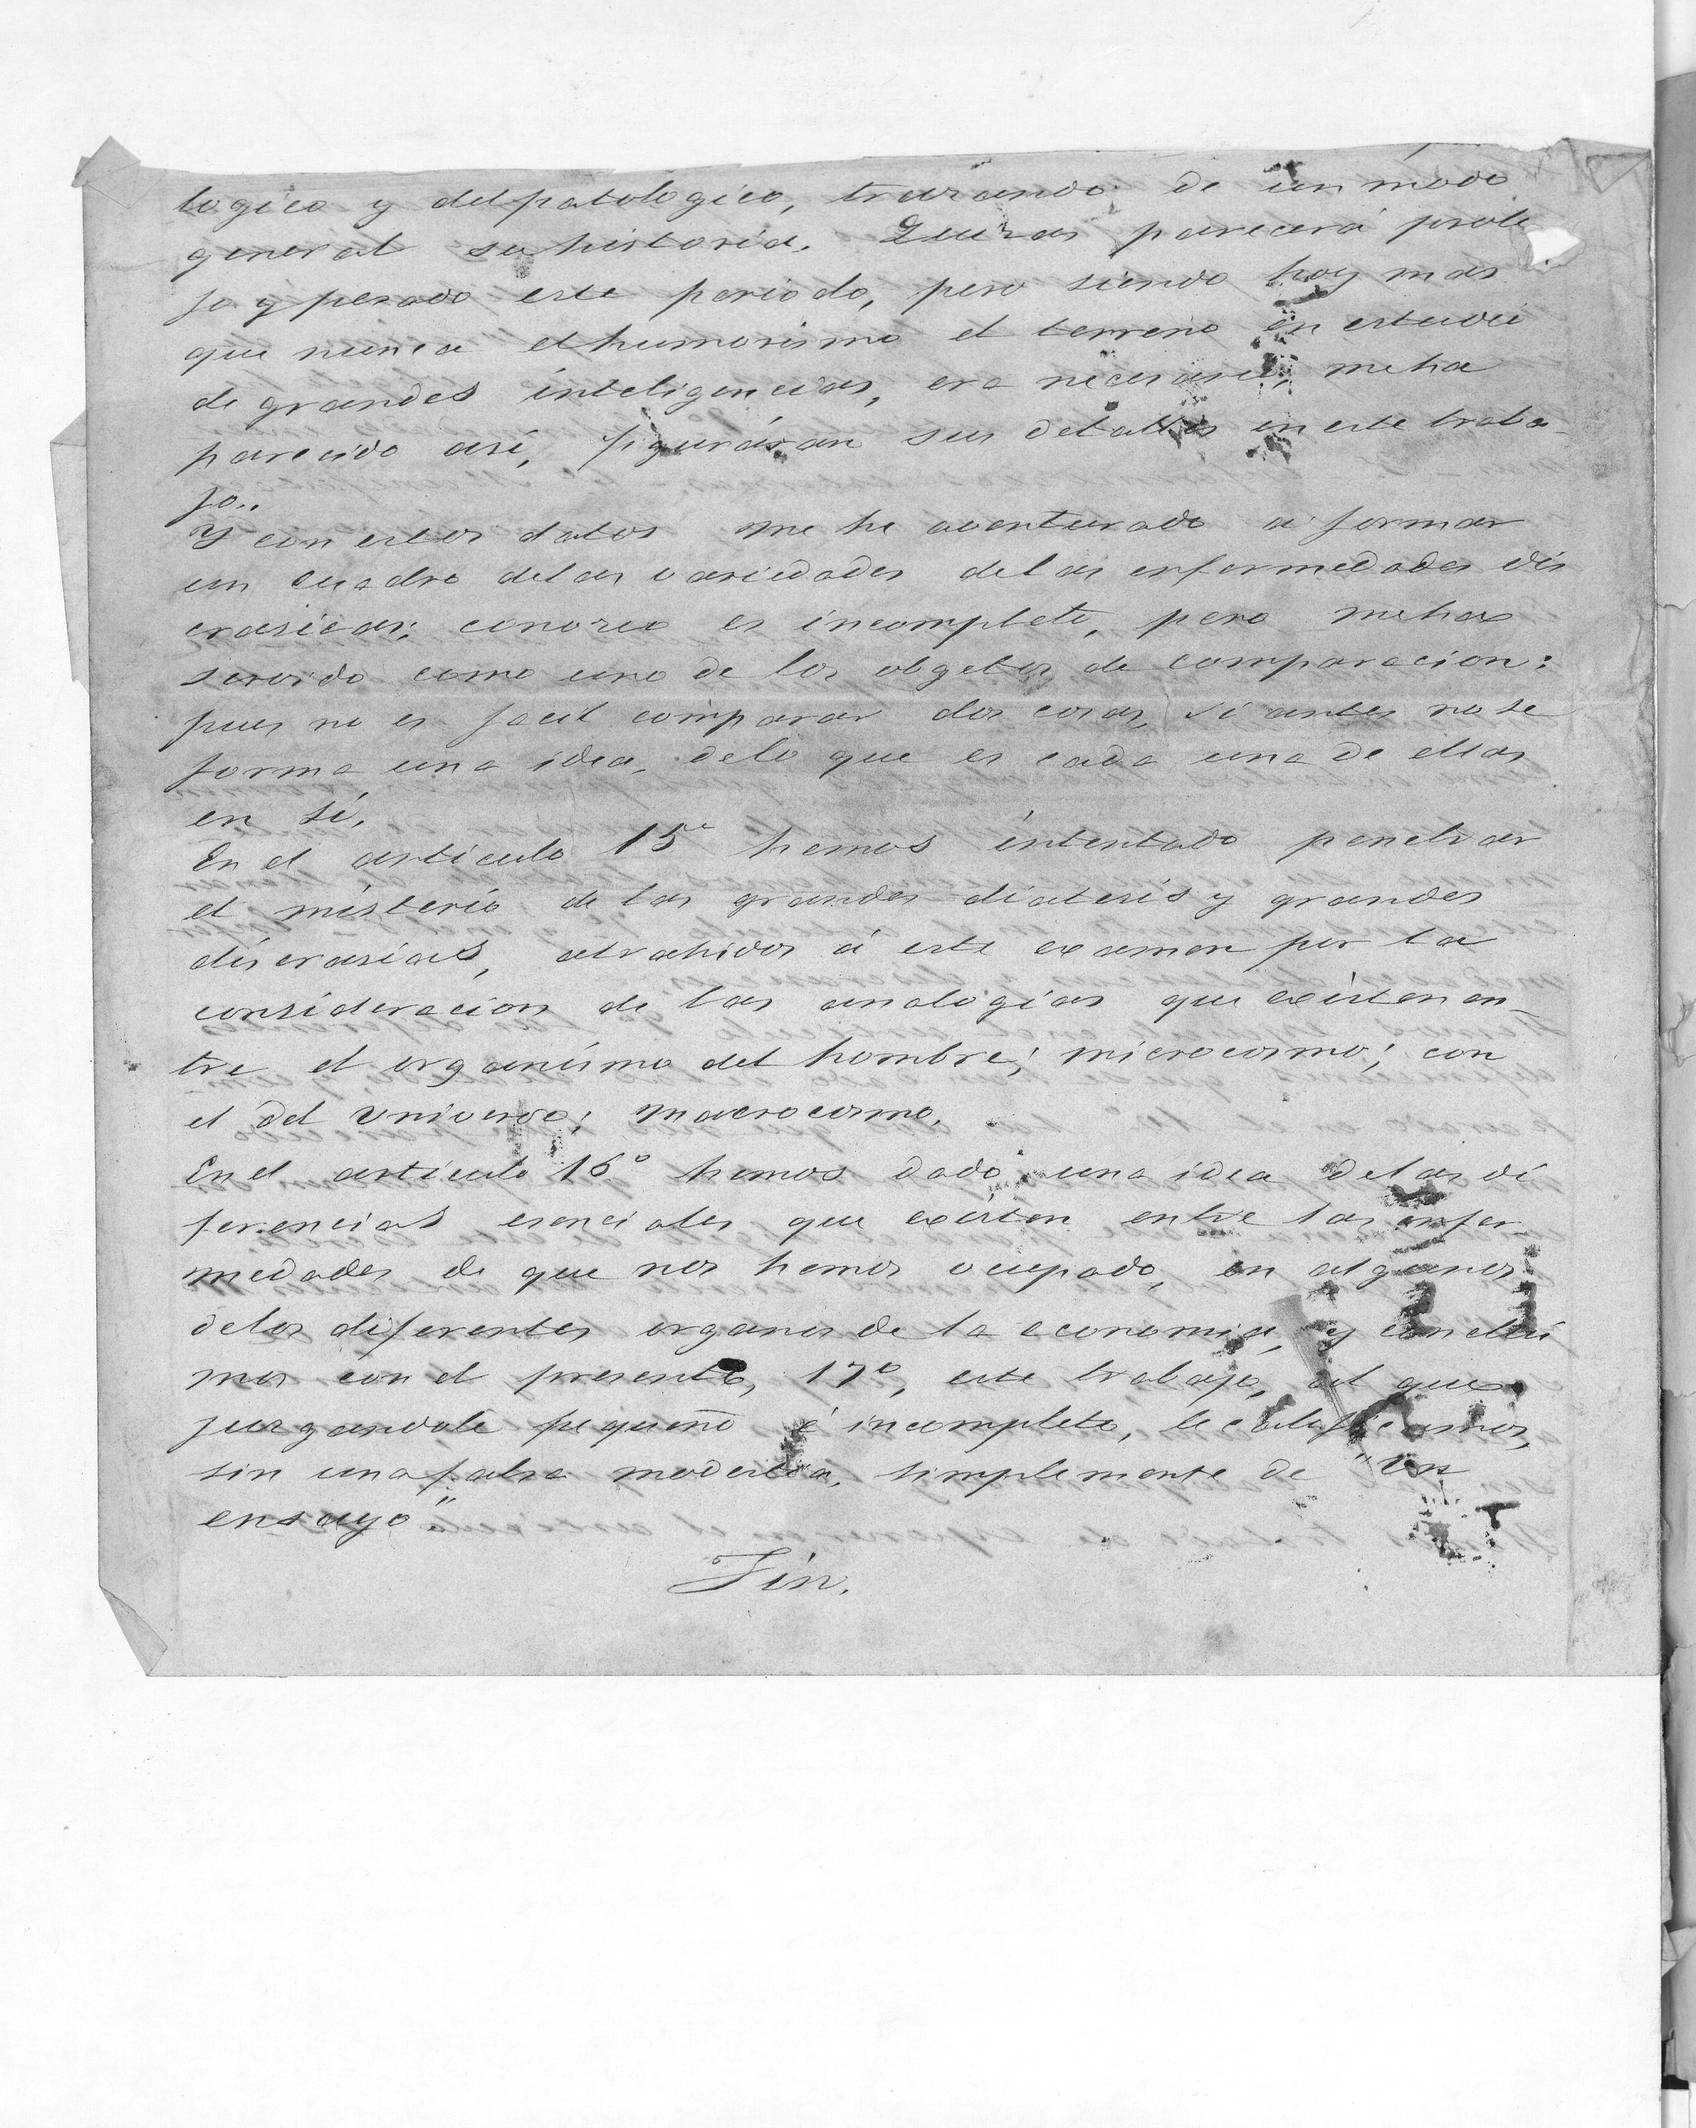 logico y del patologico, trazando de un modo
general su historia. Quizas parecerá proli
jo y pesado este periodo, pero siendo hoy mas
que nunca el humorismo el terreno en estudio
de grandes inteligencias, era necesario, me ha
parecido asi, figuráran sus detalles en este traba-
jo..
Y con estos datos me he aventurado a formar
un cuadro de las variedades de las enfermedades dis
crasicas: conozco es incompleto, pero me ha
servido como uno de los obgetos de comparacion:
pues no es facil comparar dos cosas, si antes no se
forma una idea, de lo que es cada una de ellas
en sí,
En el articulo 15º hemos intentado penetrar
el misterio de las grandes diatesis y grandes
discrasias, atrahidos á este examen por la
consideracion de las analogias que existen en-
tre el organismo del hombre; microcosmo; con
el del universo; macrocosmo.
En el articulo 16º hemos dado una idea de las di
ferencias esenciales que existen entre las enfer-
medades de que nos hemos ocupado, en algunos
de los diferentes organos de la economia, y conclui
mos con el presente, 17º, este trabajo, al que
juzgandole pequeño é incompleto, le calificamos,
sin una falsa modestia, simplemente de "un
ensayo".
Fin.